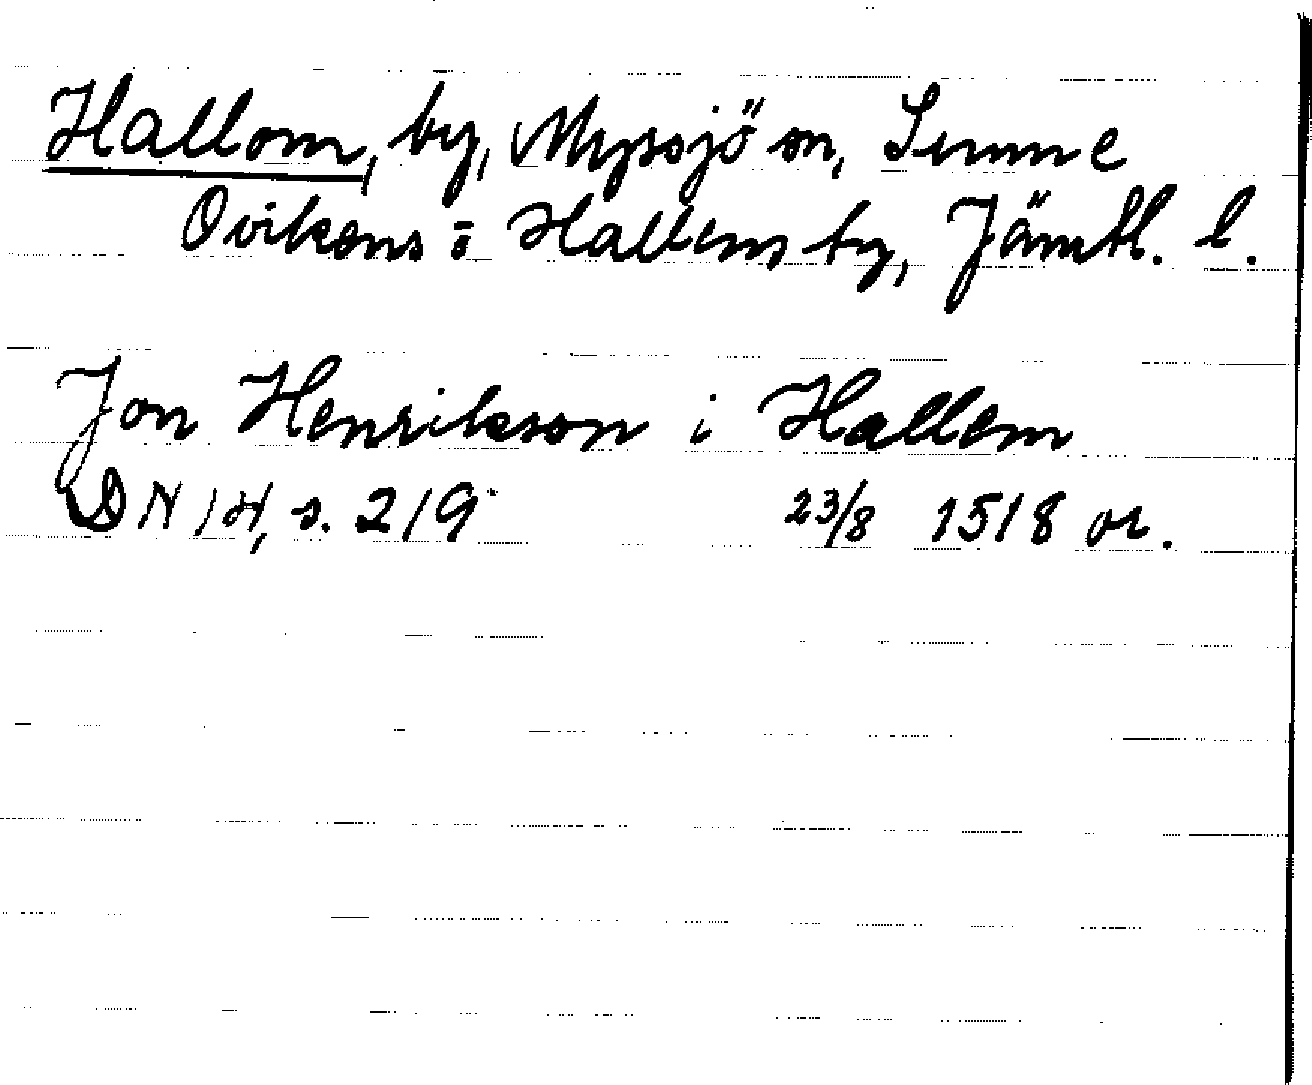 Hallom, by, Myssjö sn, Sunne
Ovikens i Hallem by, Jämtl. l.
Jon Henrikson i Hallem
DN 14, s. 219 23/8 1518 or.